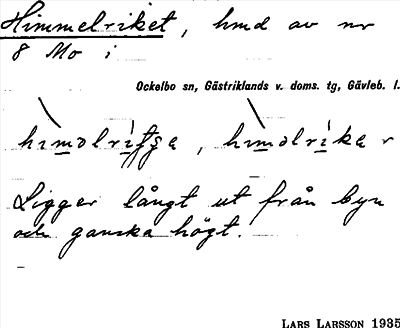 Himmelriket, hmd av nr
8 Mo i
Ockelbo sn, Gästriklands v. doms. tg, Gävleb. l.
Ligger långt ut från byn
och ganska högt.
LARS LARSSON 1935